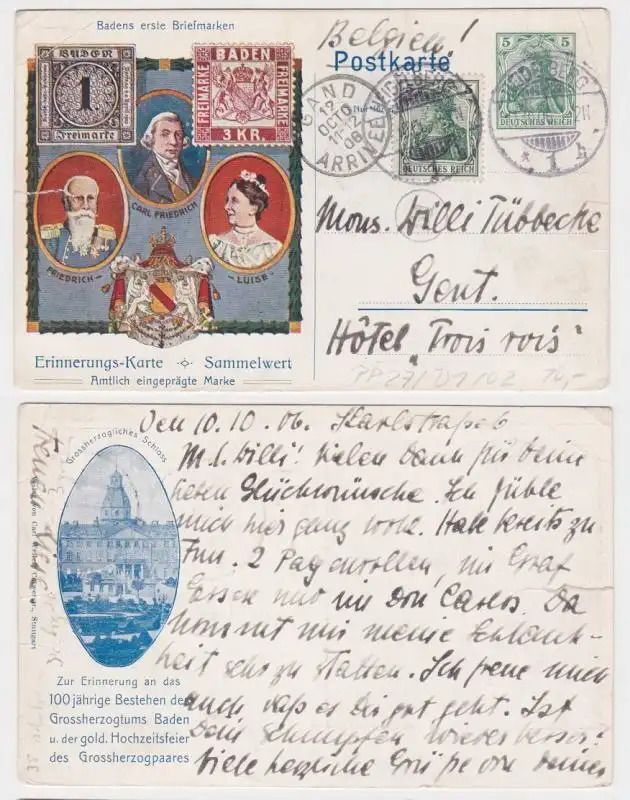 Badens erste Briefmarken
BADEN
1
Freimarke
BADEN
FREIMARKE
FREIMARKE
3 KR.
CARL FRIEDRICH
FRIEDRICH
LUISE
Erinnerungs-Karte Sammelwert
Amtlich eingeprägte Marke
Belgien!
Postkarte
5
5
DEUTSCHES REICH
DEUTSCHES REICH
HEIDELBERG
GAND
12
OCTO
11-12
06
Mons. Willi Tübbecke
Gent.
Hôtel "Trois rois"
PP27/D9/02
Grossherzogliches Schloss
Zur Erinnerung an das
100jährige Bestehen des
Grossherzogtums Baden
u. der gold. Hochzeitsfeier
des Grossherzogpaares
Den 10.10.06. Karlstraße 6
M. l. Willi! Vielen Dank für deine
lieben Glückwünsche. Ich fühle
mich hier ganz wohl. Habe bereits zu
2 Pagenrollen, im Graf
Essex und im Don Carlos. Da
kommt mir meine Schlank-
heit sehr zu statten. Ich freue mich
auch daß es dir gut geht. Ist
Dein Schnupfen wieder besser?
Viele herzliche Grüße von deiner